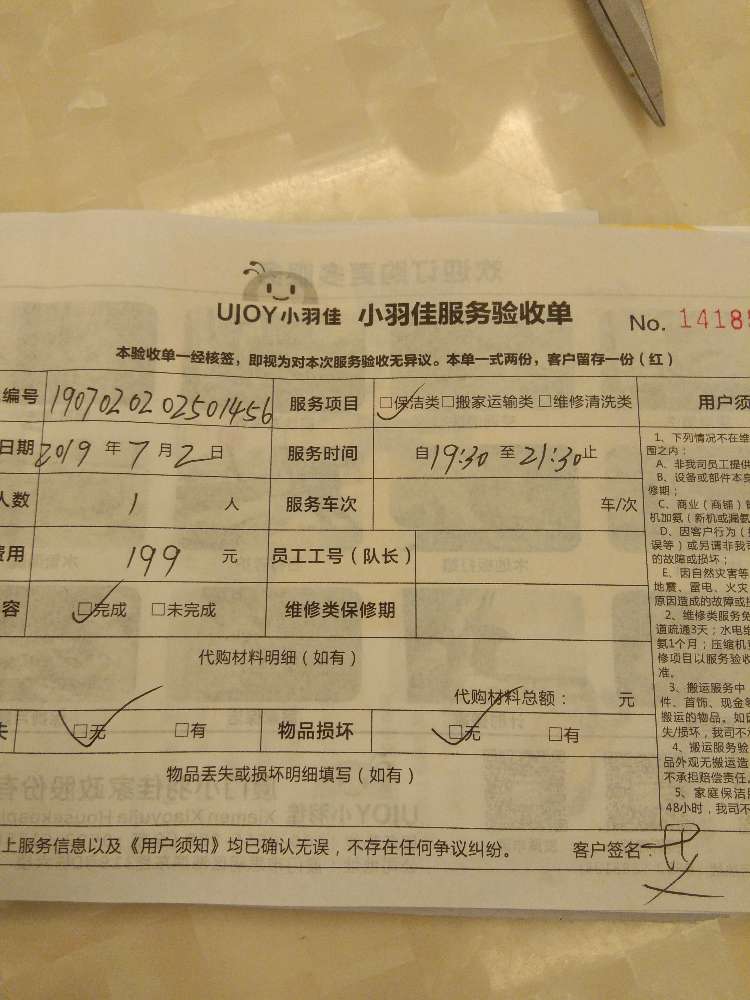 UJOY小羽佳 小羽佳服务验收单 No. 1418
本验收单一经核签，即视为对本次服务验收无异议。本单一式两份，客户留存一份（红）
编号 1907020202501456 服务项目 □保洁类□搬家运输类□维修清洗类 用户须
日期 2019 年 7 月 2 日 服务时间 自19:30 至 21:30止
人数 1 人 服务车次 车/次
费用 199 元 员工工号（队长）
容 □完成 □未完成 维修类保修期
代购材料明细（如有）
代购材料总额： 元
□无 □有 物品损坏 □无 □有
物品丢失或损坏明细填写（如有）
上服务信息以及《用户须知》均已确认无误，不存在任何争议纠纷。 客户签名：
1、下列情况不在维
围之内：
A、非我司员工提供
B、设备或部件本身
修期；
C、商业（商铺）
机加氨（新机或漏氨
D、因客户行为（
误等）或另请非我
的故障或损坏；
E、因自然灾害等
地震、雷电、火灾
原因造成的故障或损
2、维修类服务免
道疏通3天；水电维
氨1个月；压缩机
修项目以服务验收
准。
3、搬运服务中
件、首饰、现金等
搬运的物品。如因
失/损坏，我司不
4、搬运服务验
品外观无搬运造
不承担赔偿责任。
5、家庭保洁
48小时，我司不